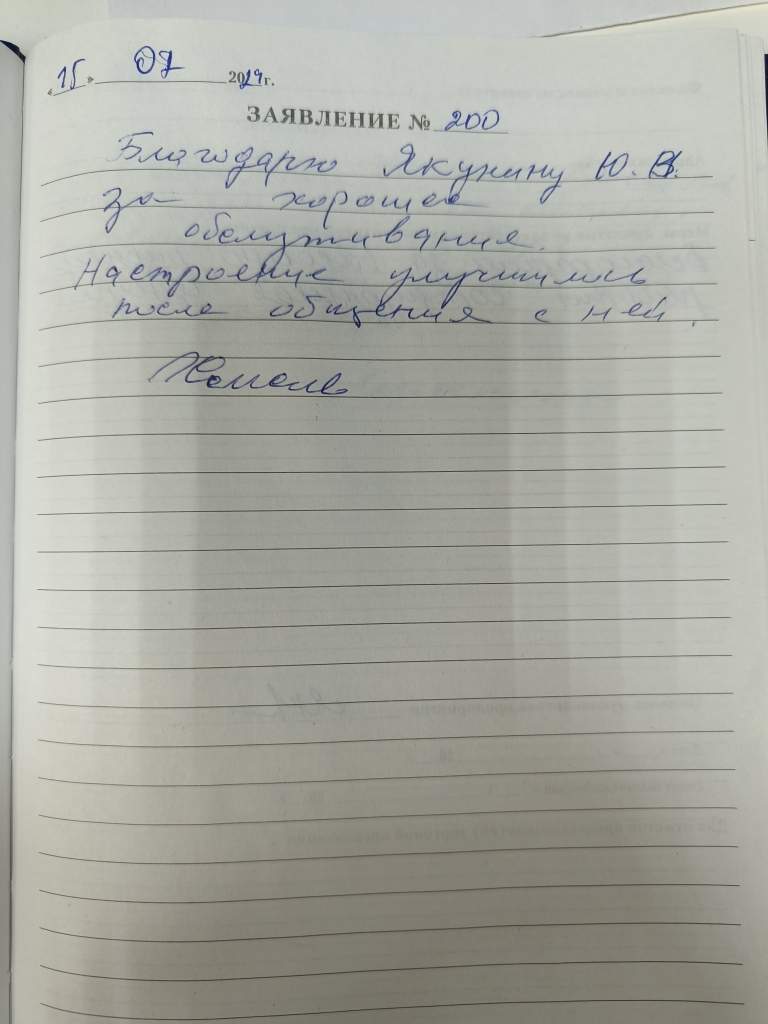 «15» 07 2024 г.
ЗАЯВЛЕНИЕ № 200
Благодарю Якунину Ю.В.
за хорошее
обслуживание.
Настроение улучшилось
после общения с ней.